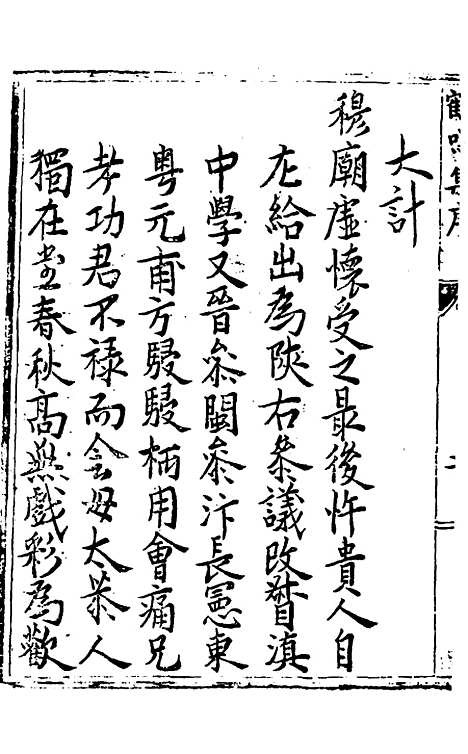 大計
穆廟虛懷受之最後忤貴人自
左給出為陝右參議改督滇
中學又晉叅閩叅汴長憲東
粵元甫方駸駸柄用會痛兄
孝功君不祿而念母太恭人
獨在堂春秋高無戲彩為歡